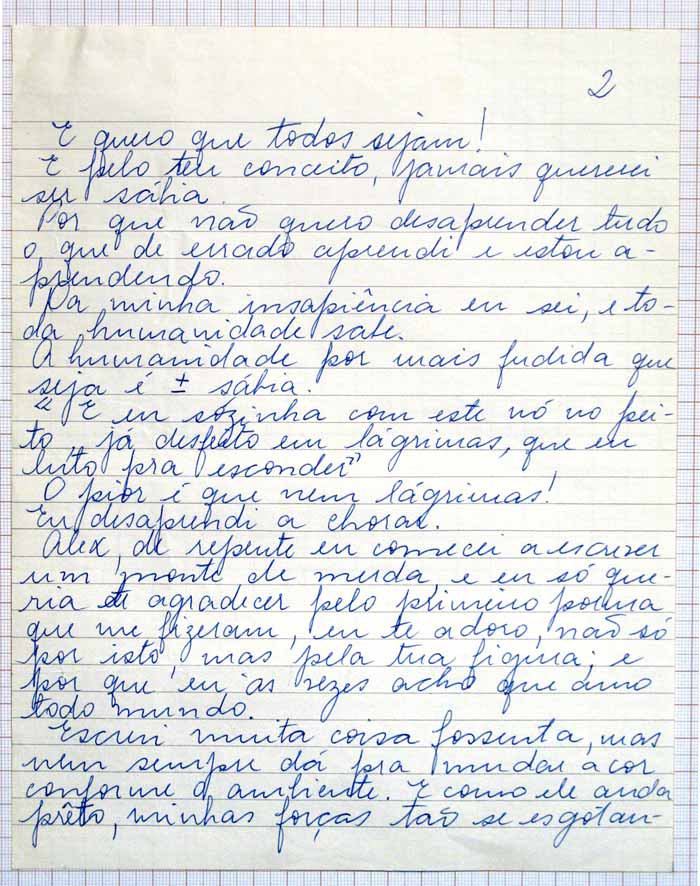 2
E quero que todos sejam!
E pelo teu conceito, jamais quererei
ser sábia.
Por que não quero desaprender tudo
o que de errado aprendi e estou a-
prendendo.
Da minha insapiência eu sei, e to-
da humanidade sabe.
A humanidade por mais fudida que
seja é ± sábia.
" E eu sózinha com este nó no pei-
to, já desfeito em lágrimas, que eu
luto pra esconder"
O pior é que nem lágrimas!
Eu desaprendi a chorar.
Alex, de repente eu comecei a escrever
um monte de merda, e eu só que-
ria te agradecer pelo primeiro poema
que me fizeram, eu te adoro, não só
por isto, mas pela tua figura; e
por que eu as vezes acho que amo
todo mundo.
Escrevi muita coisa fossenta, mas
nem sempre dá pra mudar a cor
conforme o ambiente. E como ele anda
prêto, minhas forças tão se esgotan-